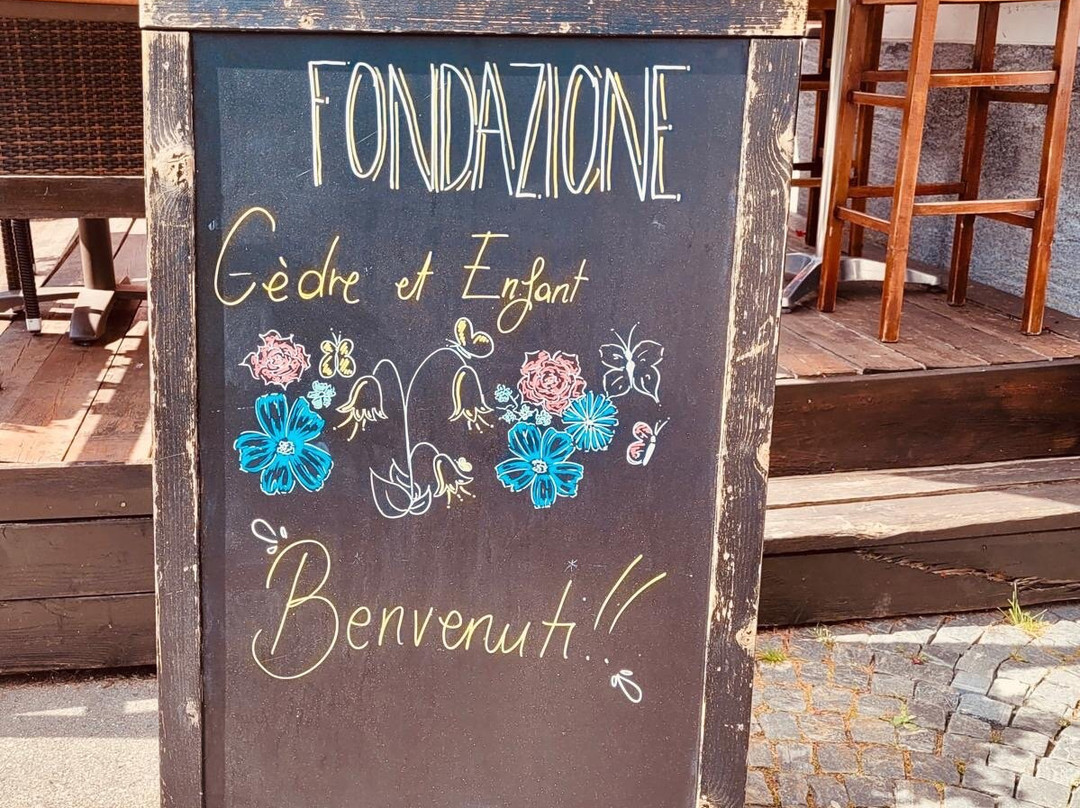 FONDAZIONE
Cèdre et Enfant
Benvenuti!!